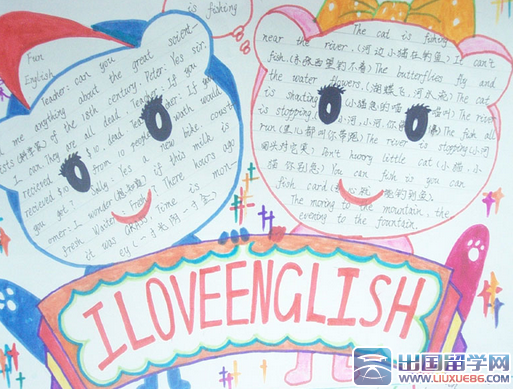 is fishing
Fun
English
Teacher: can you
me anything about the great scient-
ists (科学家) of the 18th century Peter: Yes sir.
I can They are all dead. Teacher: If you
recieved $10. from 10 people, wath would
you get? Emily: Yes a new bike. Const-
omer: I wonder (想知道) if this milk is
fresh. Waiter: Fresh? There hours ago
it was Grass! Time is mon-
ey (一寸光阴一寸金)
The cat is fishing
near the river. (河边小猫在钓鱼) I can't
fish. (东张西望钓不着) The butterflies fly and
the water flowers. (蝴蝶飞,河水流) The cat
is shouting
is stopping
The fish all
run (鱼儿都叫你带跑) The river is stopping (小河
回头对它笑) Don't huorry little cat (小猫,小
猫 你别急) You can fish so you can
fish card
The moring to the mountain, the
evening to the fountain.
I LOVE ENGLISH
出国留学网
WWW.LIUXUE86.COM